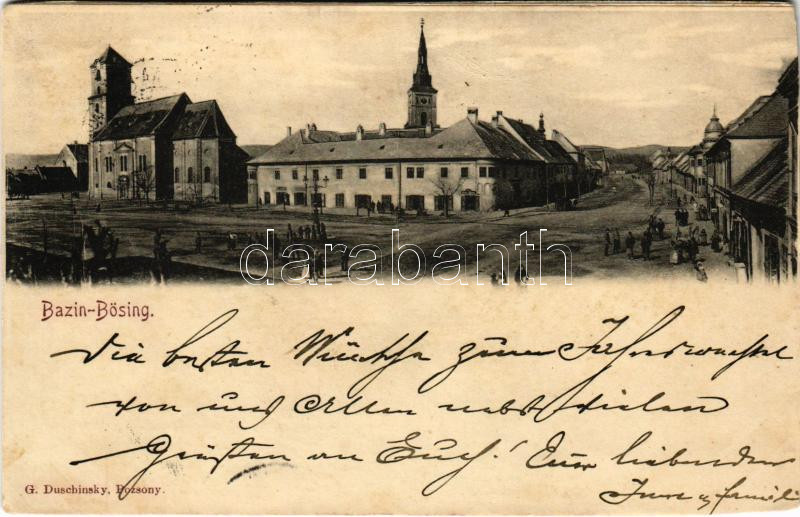 darabanth
Bazin-Bösing.
Die besten Wünsche zum Jahreswechsel
von uns Allen nebst vielen
Grüßen an Euch! Eure liebenden
G. Duschinsky, Pozsony.